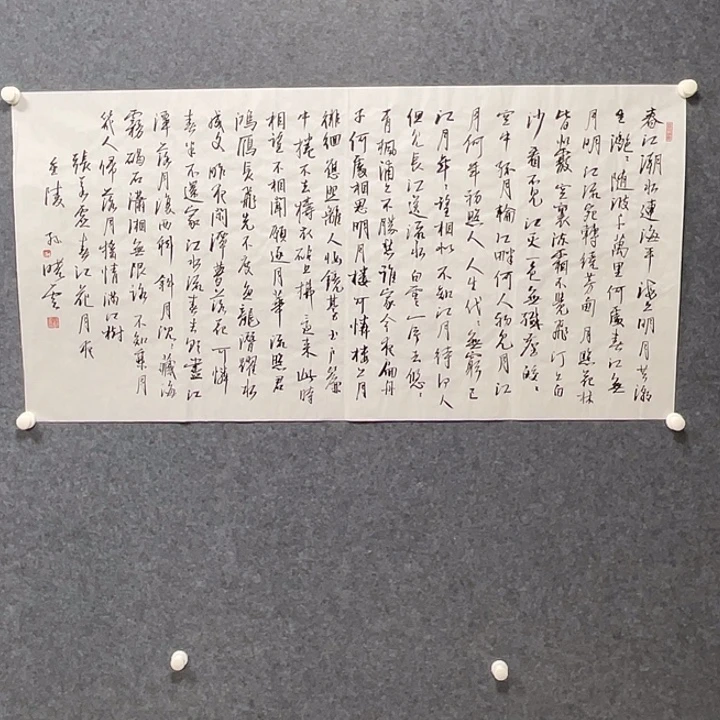 春江潮水連海平海上明月共潮
生灩々隨波千萬里何處春江無
月明江流宛轉繞芳甸月照花林
皆似霰空裏流霜不覺飛汀上白
沙看不見江天一色無纖塵皎々
空中孤月輪江畔何人初見月江
月何年初照人人生代々無窮已
江月年々望相似不知江月待何人
但見長江送流水白雲一片去悠々
青楓浦上不勝愁誰家今夜扁舟
子何處相思明月樓可憐樓上月
徘徊應照離人妝鏡臺玉戶簾
中捲不去擣衣砧上拂還來此時
相望不相聞願逐月華流照君
鴻雁長飛光不度魚龍潛躍水
成文昨夜閑潭夢落花可憐
春半不還家江水流春去欲盡江
潭落月復西斜斜月沉々藏海
霧碣石瀟湘無限路不知乘月
幾人歸落月搖情滿江樹
張若虛春江花月夜
金陵孫曉雲